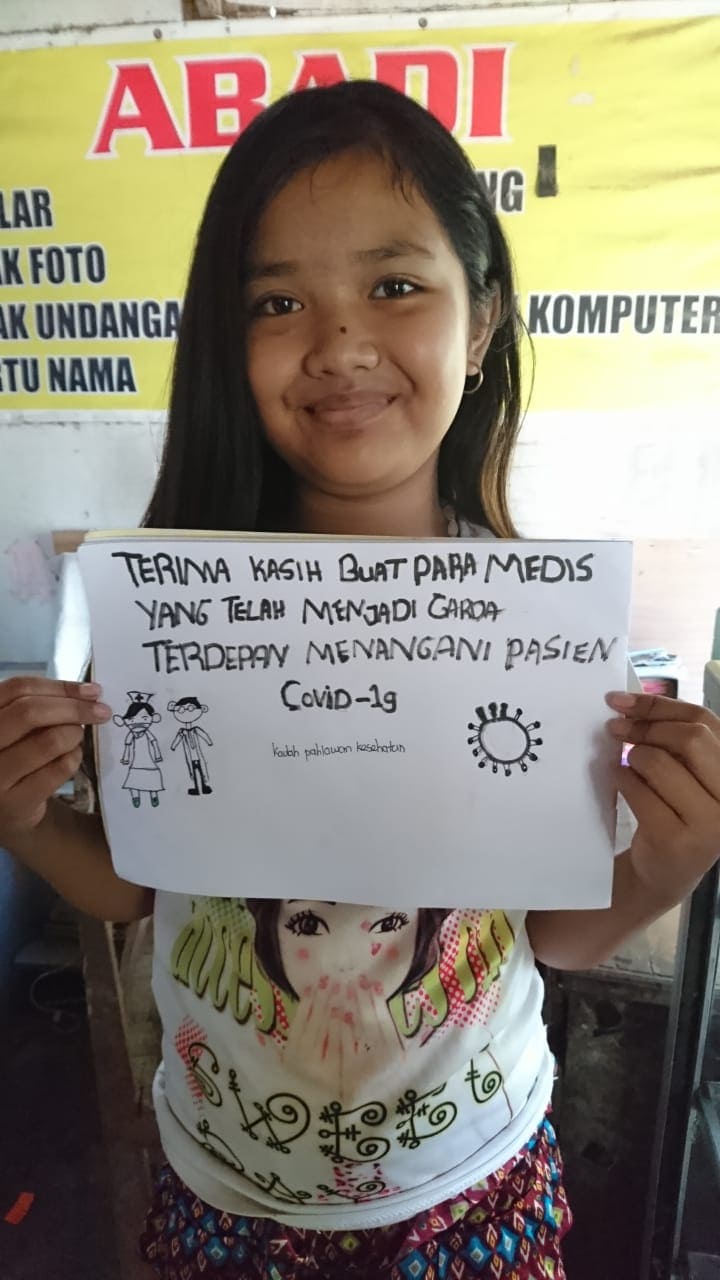 ABADI
LAR
NG
K FOTO
AK UNDANGA
KOMPUTER
TU NAMA
TERIMA KASIH BUAT PARA MEDIS
YANG TELAH MENJADI GARDA
TERDEPAN MENANGANI PASIEN
COVID-19
Kaulah pahlawan kesehatan